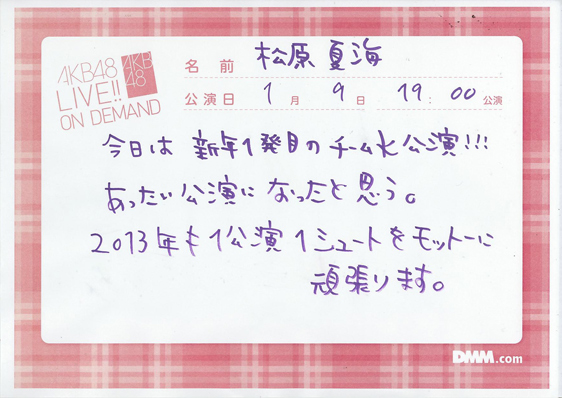 AKB48
LIVE!!
ON DEMAND
AKB
48
名前 松原夏海
公演日 1月 9日 19:00公演
今日は 新年1発目のチームK公演!!!
あったい公演になったと思う。
2013年も1公演1シュートをモットーに
頑張ります。
DMM.com